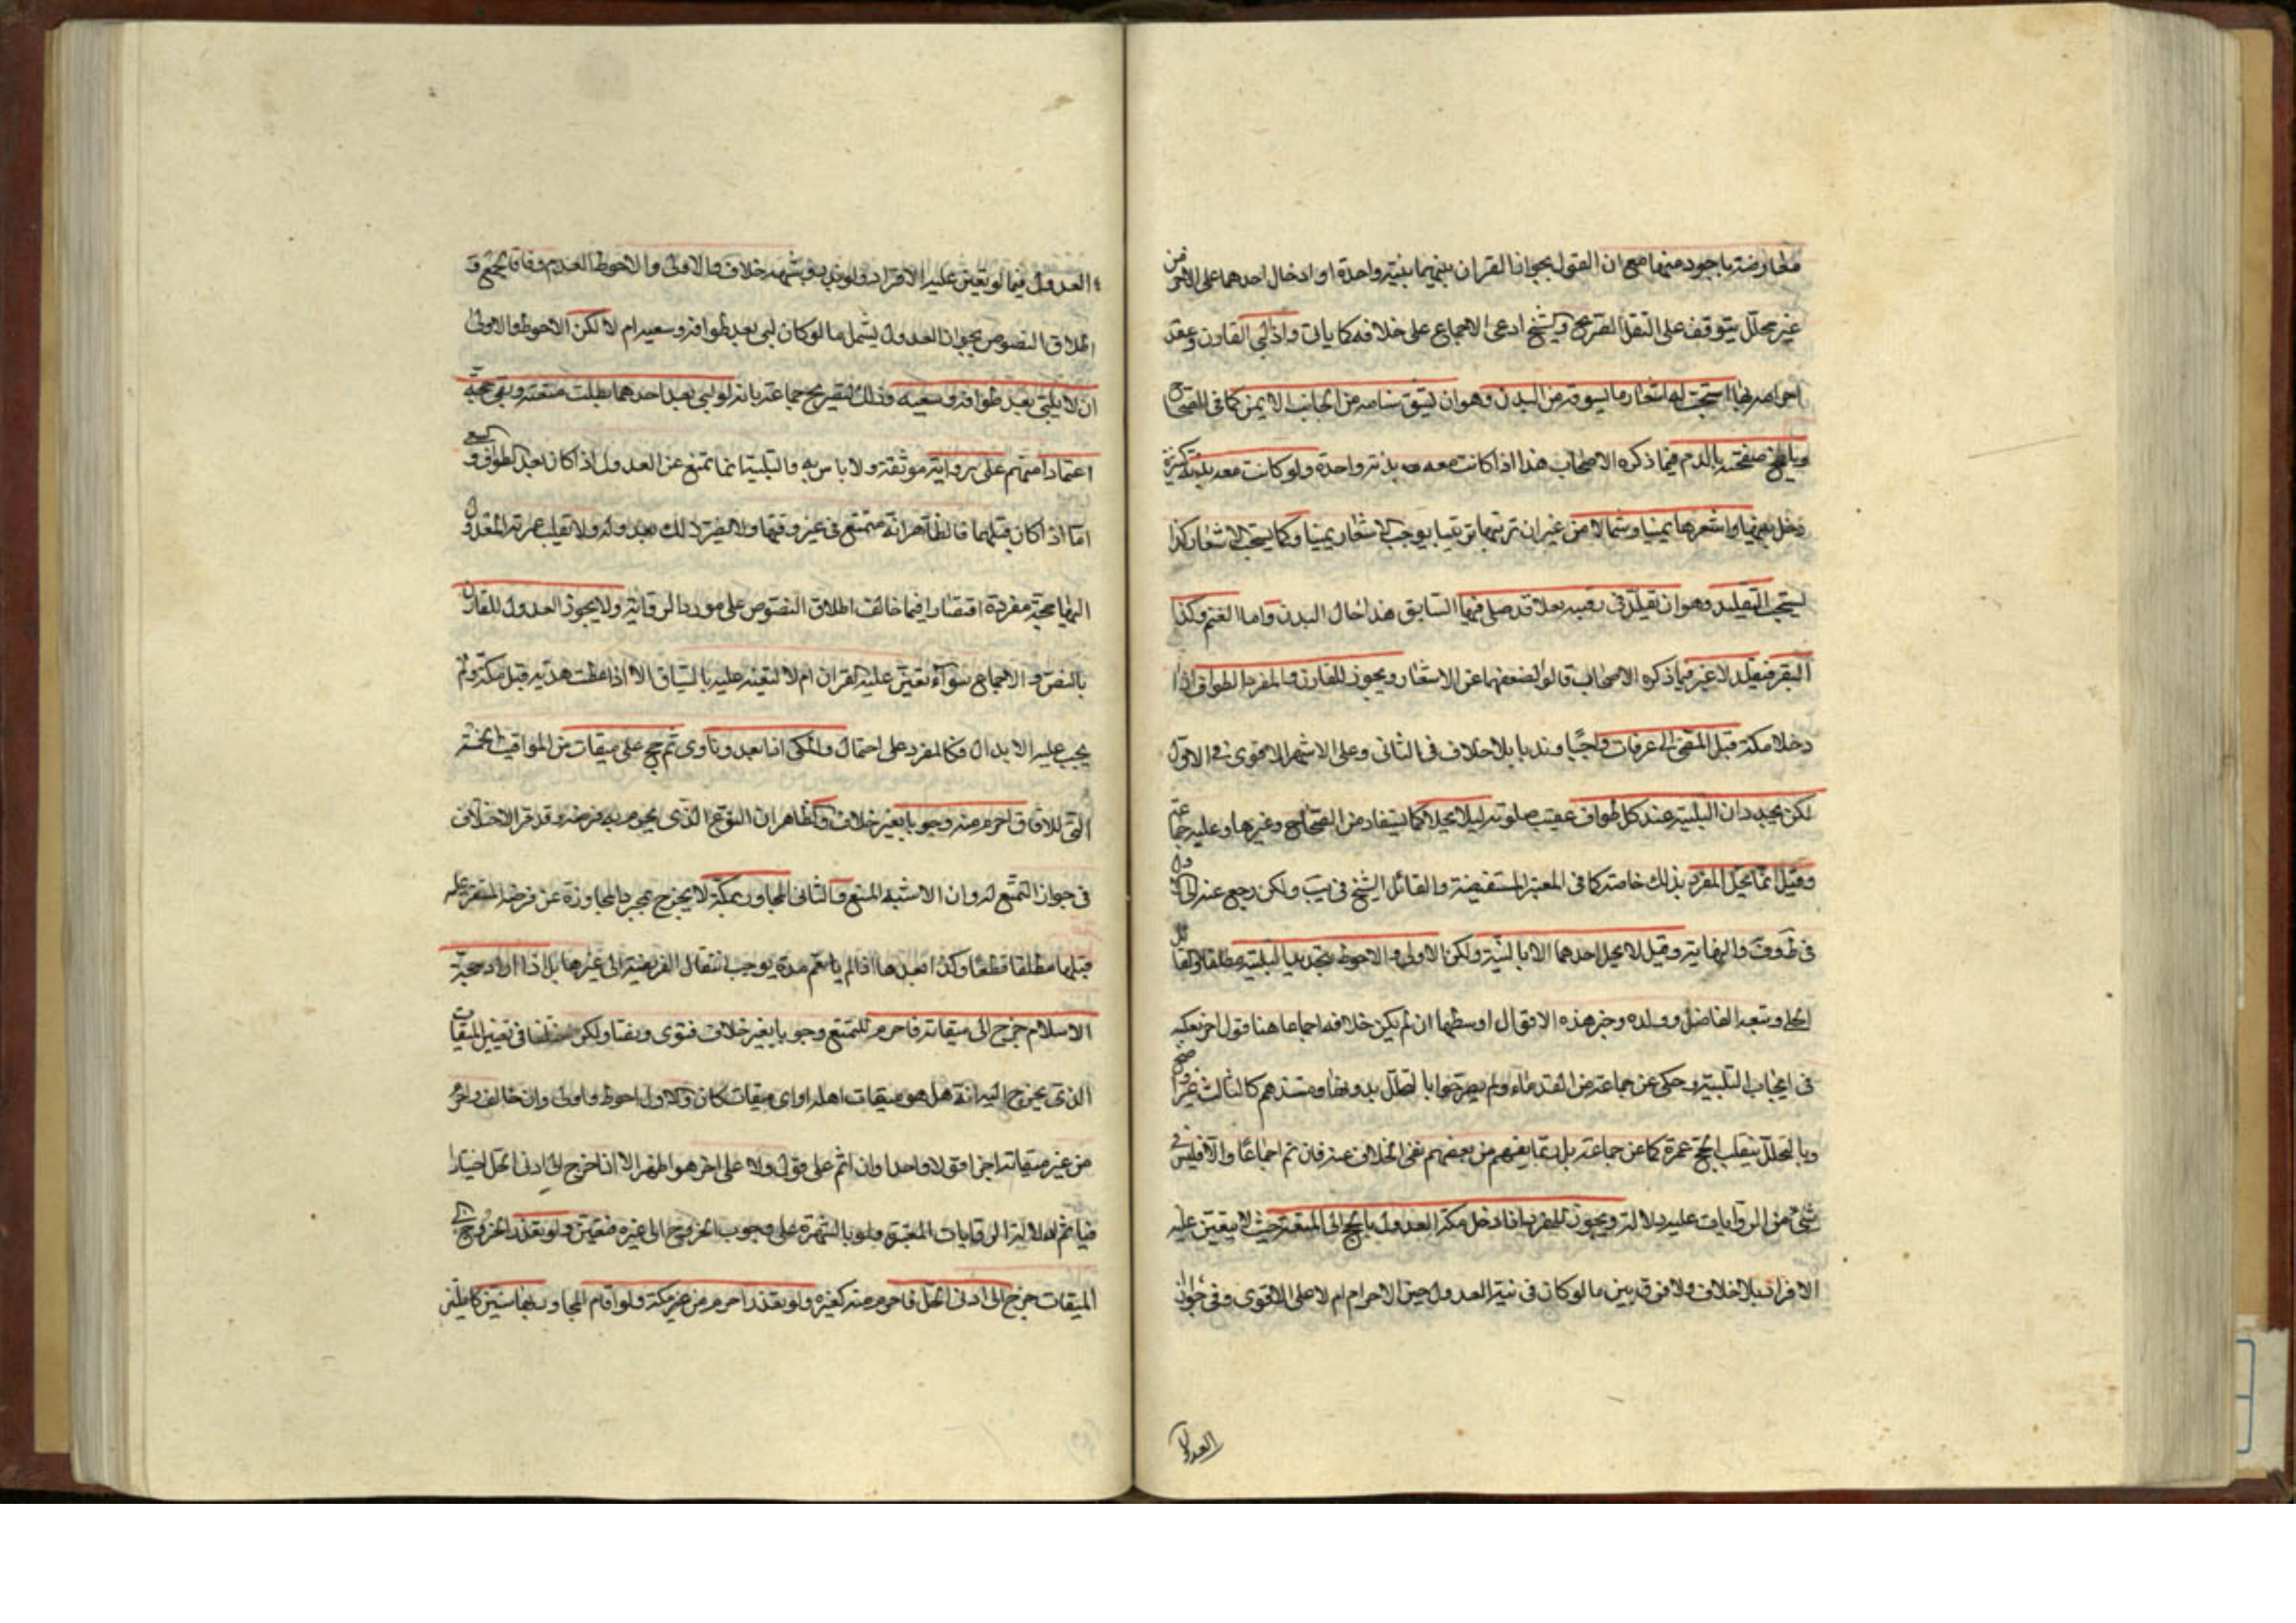 معارضته باجود منهما مع ان القول بجواز القران بينهما بنية واحدة او ادخال احدهما على الاخر من
غير تحلل يتوقف على النقل الصريح والشيخ ادعى الاجماع على خلافه كما ياتى واذا لبى القارن وعقد
احرامه بها استحب له اشعار ما يسوقه من البدن وهو ان يشق سنامه من الجانب الايمن كما فى الصحاح
ويلطخ صفحته بالدم فيما ذكره الاصحاب هذا اذا كانت معه بدنة واحدة ولو كانت معه بدن كثيرة
دخل بينها واشعرها يمينا وشمالا من غير ان يرتبها ترتيبا يوجب الاشعار يمينا وكما يستحب الاشعار كذا
يستحب التقليد وهو ان يقلد فى رقبته نعلا قد صلى فيها السايق هذا حال البدن واما الغنم وكذا
البقر فيقلد لا غير فيما ذكره الاصحاب قالوا لضعفهما عن الاشعار ويجوز للقارن والمفرد الطواف اذا
دخلا مكة قبل المضى الى عرفات واجبا وندبا بلا خلاف فى الثانى وعلى الاشهر الاقوى فى الاول
لكن يجددان التلبية عند كل طواف عقيب صلوته ليلا يحلا كما يستفاد من الصحاح وغيرها وعليه جماعة
وقيل انما يحل المفرد بذلك خاصة كما فى المعتبرة المستفيضة والقائل الشيخ فى يب ولكن رجع عنه
فى ط وف والنهاية وقيل لا يحل احدهما الا بالنية ولكن الاولى والاحوط تجديد التلبية مطلقا والقائل
الحلى وتبعه الفاضل وولده وخير هذه الاقوال اوسطها ان لم يكن خلافه اجماعا هنا قول اخر بعكسه
فى ايجاب التلبية وحكى عن جماعة من القدماء ولم يصرحوا بالتحلل بدونها ومستندهم كالثالث غير واضح
وبالتحلل ينقلب الحج عمرة كما عن جماعة بل ربما يفهم من بعضهم نفى الخلاف عنه فان تم اجماعا والا فليس فى
شىء من الروايات عليه دلالة ويجوز للمفرد اذا دخل مكة العدول بالحج الى المتعة حيث لا يتعين عليه
الافراد بلا خلاف ولا فرق بين ما لو كان فى نيته العدول حين الاحرام ام لا على الاقوى وفى جواز
العدول
العدول فيما لو تعين عليه الافراد ولو بنذر وشبهه خلاف والاولى والاحوط العدم وفاقا لجمع و
اطلاق النصوص بجواز العدول يشمل ما لو كان لبى بعد طوافه وسعيه ام لا لكن الاحوط والاولى
ان لا يلبى بعد طوافه وسعيه وذلك لتصريح جماعة بانه لو لبى بعد احدهما بطلت متعته وبقى على حجه
اعتمادا منهم على رواية موثقة ولا باس به والتلبية انما تمنع عن العدول اذا كان بعد الطواف والسعى
اما اذا كان قبلهما فالظاهر انه متمتع فى غير وقتها ولا يضر ذلك بعدوله ولا تقلب عمرته المعدول
اليها حجة مفردة اقتصارا فيما خالف اطلاق النصوص على مورد الرواية ولا يجوز العدول للقارن
بالنص والاجماع سواء تعين عليه القران ام لا لتعينه عليه بالسياق الا اذا عطب هديه قبل مكة ولم
يجب عليه الابدال فكالمفرد على احتمال والمكى اذا بعد وناوى ثم حج على ميقات من المواقيت الخمسة
التى للافاق احرم منه وجوبا بغير خلاف والظاهر ان النوع الذى يحرم به فرضه وقد مر الاختلاف
فى جواز التمتع له وان الاشبه المنع والثانى المجاور بمكة لا يخرج بمجرد المجاورة عن فرضه المستقر عليه
قبلها مطلقا قطعا وكذا بعدها اذا لم يقم مدة يوجب انتقال الفريضة الى غيرها بل اذا اراد حجة
الاسلام خرج الى ميقاته فاحرم للتمتع وجوبا بغير خلاف فتوى ونصا ولكن اختلفا فى تعيين الميقات
الذى يخرج اليه انه هل هو ميقات اهله او اى ميقات كان والاول احوط واولى وان خالف واحرم
من غير ميقاته اجزا قولا واحدا وان اثم على قول ولا على اخر هو اظهر الا اذا خرج الى ادنى الحل اختيارا
فياثم لدلالة الروايات المعتبرة ولو بالشهرة على وجوب الخروج الى غيره فتعين ولو تعذر الخروج الى
الميقات خرج الى ادنى الحل فاحرم منه كغيره ولو تعذر احرم من مكة ولو اقام المجاور بها سنتين كاملتين